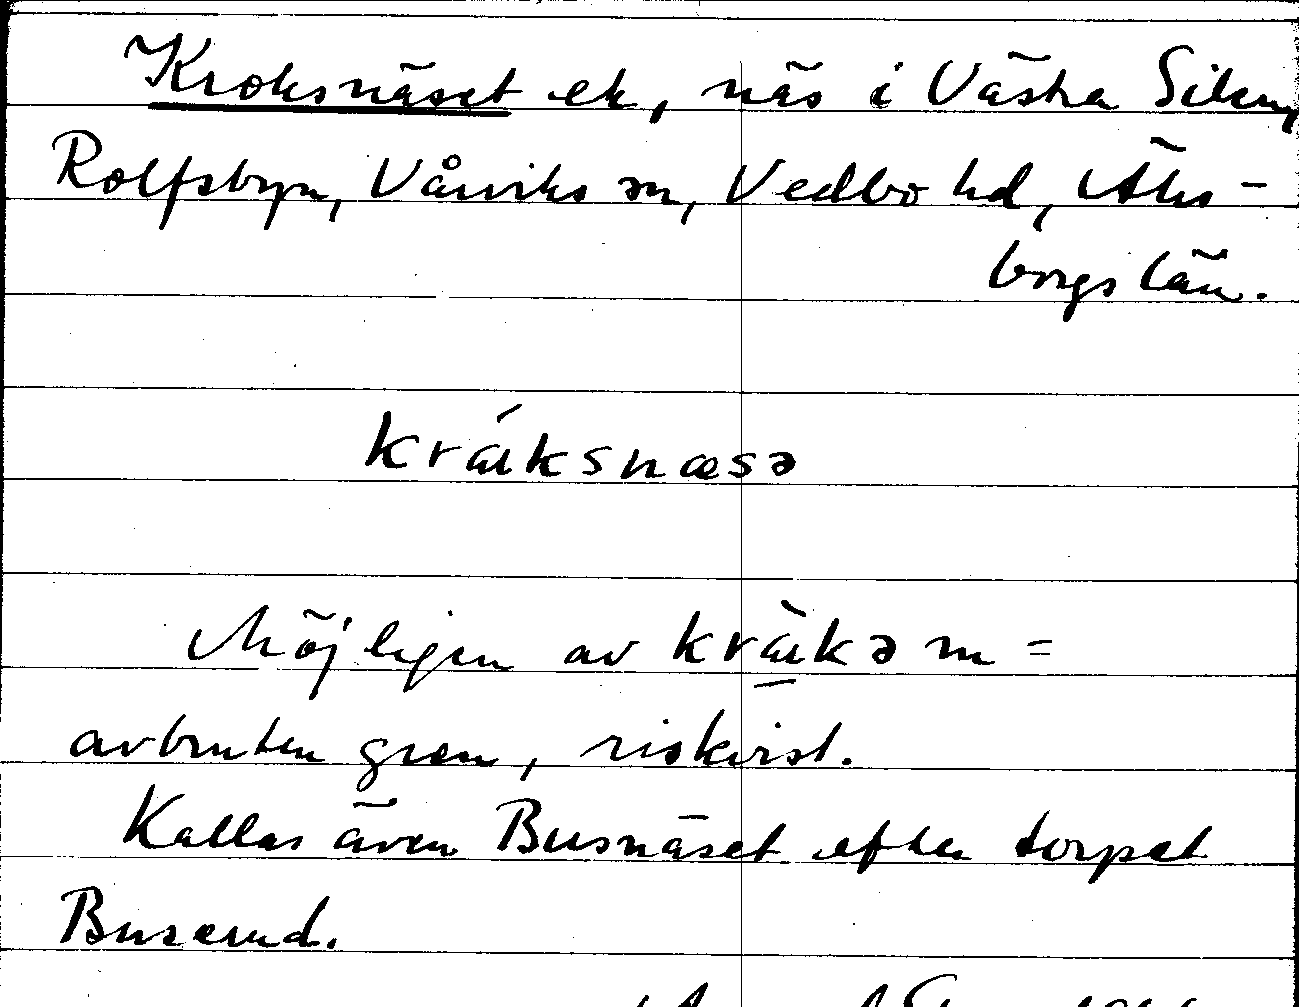 Kroksnäset ek, näs i Västra Silen,
Rolfsbyn, Vårviks sn, Vedbo hd, Älvs-
borgs län.
kráuksnæsə
Möjligen av kràukə m =
avbruten gren, riskvist.
Kallas även Busnäset efter torpet
Buserud.